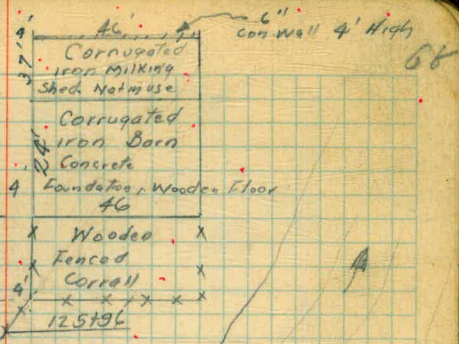 46' 6"
Con Wall 4' High
68
4'
37'
Corrugated
Iron Milking
Shed Not in use
Corrugated
Iron Barn
24'
Concrete
4' Foundation, Wooden Floor
46
Wooden
Fenced
Corrall
4'
125+96